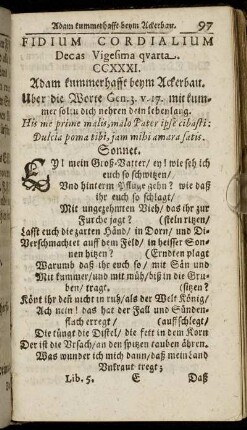 Adam kummerhafft beym Ackerbau. 97
FIDIUM CORDIALIUM
Decas Vigesima qvarta.
CCXXXI.
Adam kummerhafft beym Ackerbau.
Über die Worte Gen. 3. v. 17. mit kum-
mer solt du dich nehren dein lebenlang.
His me prime malis, malo Pater ipse cibasti:
Dulcia poma tibi, jam mihi amara satis.
Sonnet.
EY! mein Groß-Vatter / ey! wie seh ich
euch so schwitzen /
Und hinterm Pfluge gehn? wie daß
ihr euch so schlagt /
Mit ungezehmten Vieh / das ihr zur
Furche jagt? (steln ritzen /
Lasst euch die zarten Händ / in Dorn / und Di-
Verschmachtet auff dem Feld / in heisser Son-
nen hitzen? (Erndten plagt
Warumb daß ihr euch so / mit Sän und
Mit kummer / und mit müh / biß in die Gru-
ben / tragt. (sitzen?
Könt ihr den nicht in ruh / als der Welt König /
Ach nein! das hat der Fall und Sünden-
flach erregt / (auff schlegt /
Die tüngt die Distel / die fett in dem Korn
Der ist die Ursach / an den spitzen rauben ähren.
Was wunder ich mich dann / daß mein Land
Unkraut tregt;
Lib. 5. E Daß